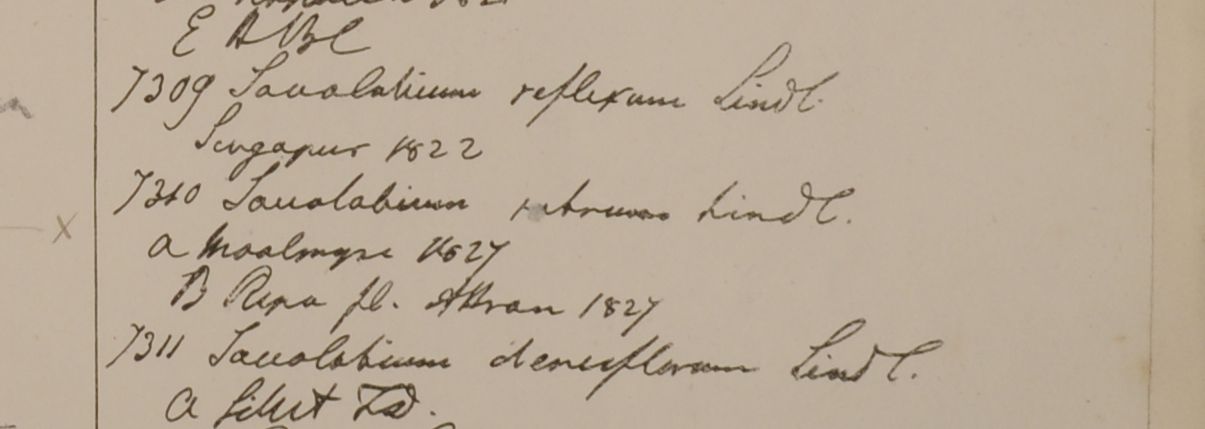 E HBC
7309 Saccolabium reflexum Lindl.
Singapur 1822
7310 Saccolabium rubrum Lindl.
a Moalmyne 1827
B Ripa fl. Attran 1827
7311 Saccolabium densiflorum Lindl.
a Silhet F.D.